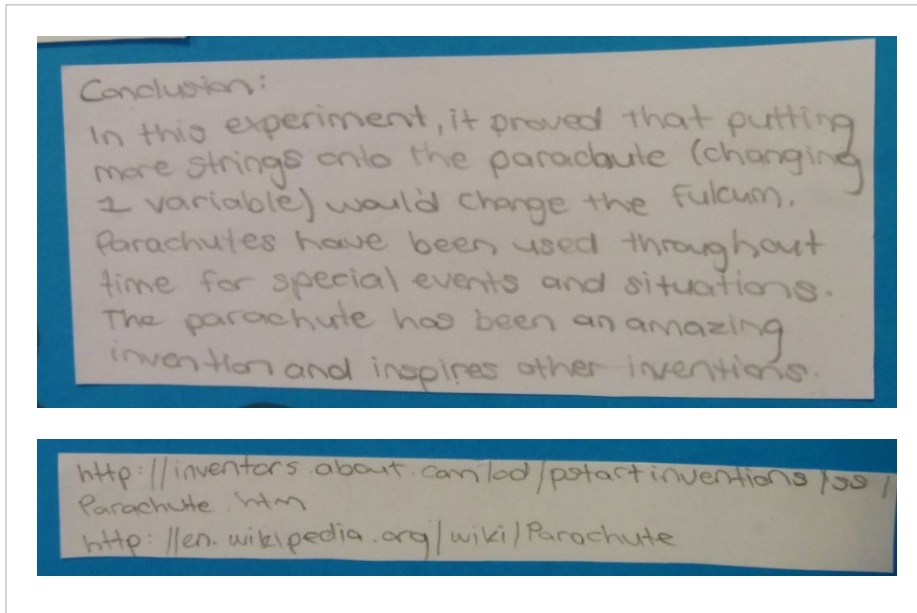 Conclusion:
In this experiment, it proved that putting
more strings onto the paradaute (changing
1 variable) would change the fulcum.
Parachutes have been used throughout
time for special events and situations.
The parachute has been an amazing
invention and inspires other inventions.
http://inventors.about.com/od/pstartinventions/ss/
Parachute.htm
http://en.wikipedia.org/wiki/Parachute